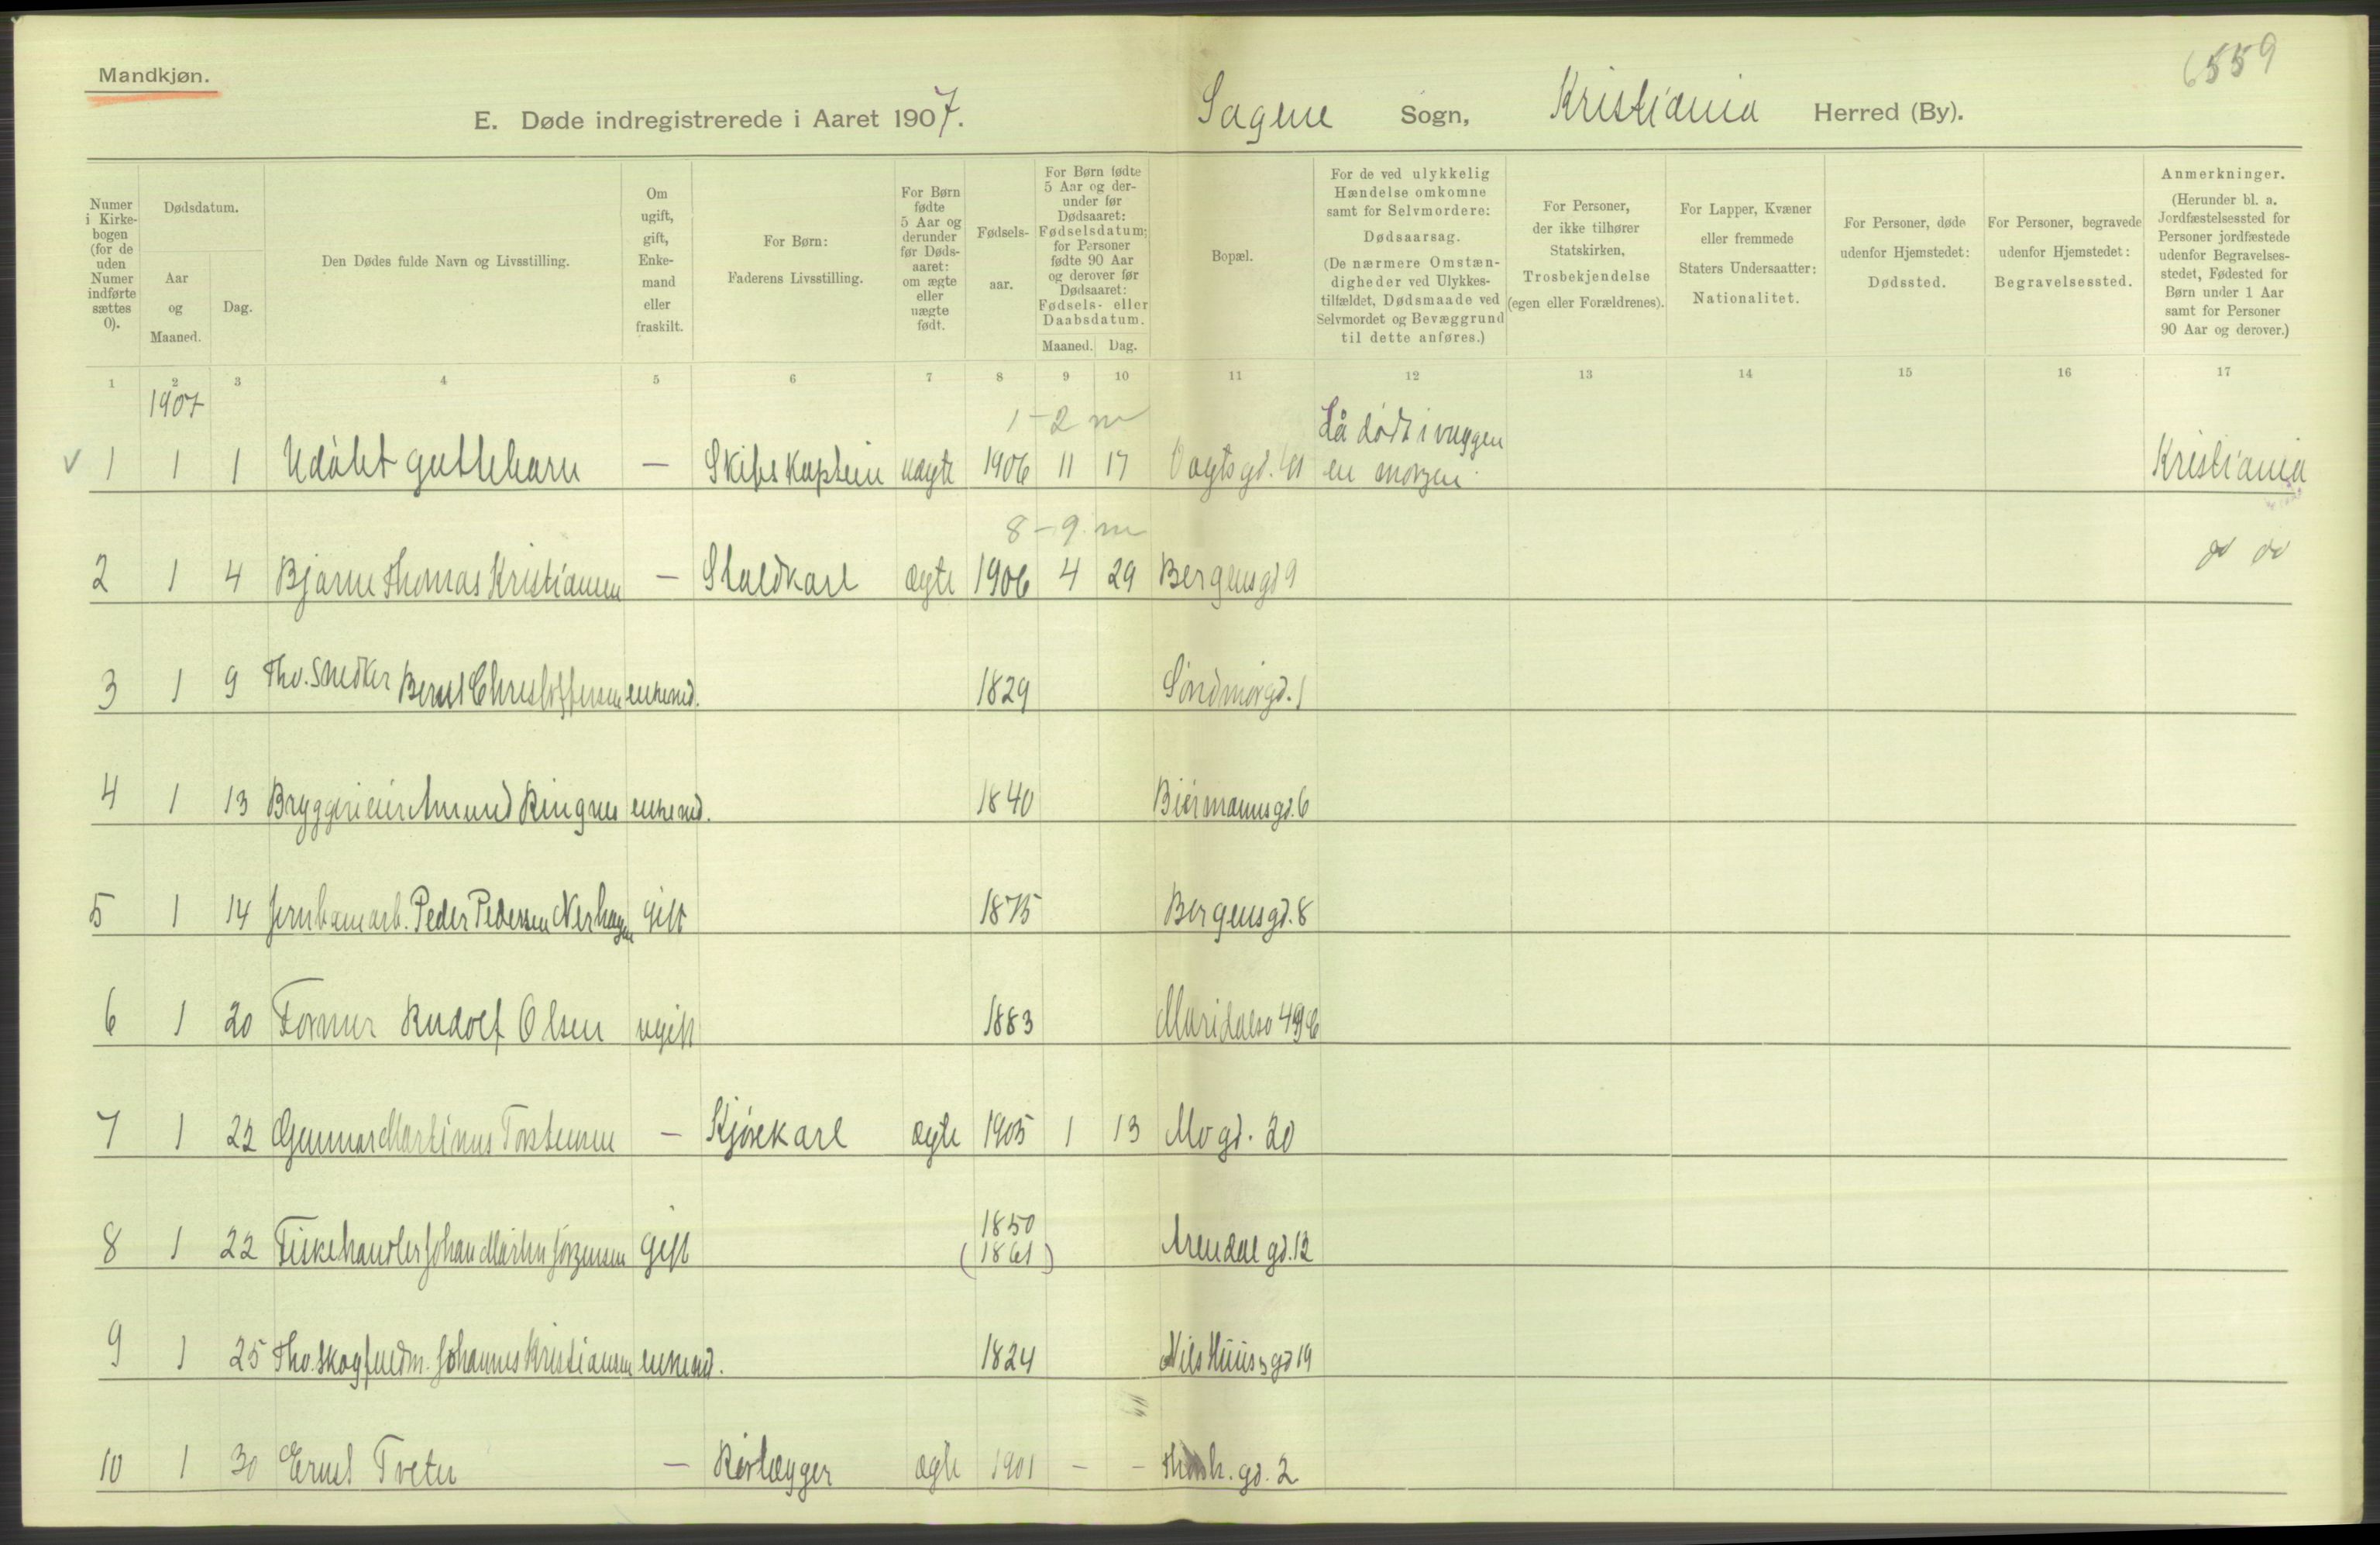 Mandkjøn.
6559
E. Døde indregistrerede i Aaret 1907.
Sagene Sogn, Kristiania Herred (By).
Numer i Kirkebogen (for de uden Numer indførte sættes 0).
Dødsdatum.
Aar og Maaned.
Dag.
Den Dødes fulde Navn og Livsstilling.
Om ugift, gift, Enkemand eller fraskilt.
For Børn: Faderens Livsstilling.
For Børn fødte 5 Aar og derunder før Dødsaaret: om ægte eller uægte født.
Fødselsaar.
For Børn fødte 5 Aar og derunder før Dødsaaret: Fødselsdatum; for Personer fødte 90 Aar og derover før Dødsaaret: Fødsels- eller Daabsdatum.
Maaned. Dag.
Bopæl.
For de ved ulykkelig Hændelse omkomne samt for Selvmordere: Dødsaarsag. (De nærmere Omstændigheder ved Ulykkestilfældet, Dødsmaade ved Selvmordet og Bevæggrund til dette anføres.)
For Personer, der ikke tilhører Statskirken, Trosbekjendelse (egen eller Forældrenes).
For Lapper, Kvæner eller fremmede Staters Undersaatter: Nationalitet.
For Personer, døde udenfor Hjemstedet: Dødssted.
For Personer, begravede udenfor Hjemstedet: Begravelsessted.
Anmerkninger. (Herunder bl. a. Jordfæstelsessted for Personer jordfæstede udenfor Begravelsesstedet, Fødested for Børn under 1 Aar samt for Personer 90 Aar og derover.)
1 2 3 4 5 6 7 8 9 10 11 12 13 14 15 16 17
1907
1-2 m
Lå dødt i vuggen
1 1 1 Udøbt guttebarn — Skibskaptein uægte 1906 11 17 Vogtsgd. en morgen. Kristiania
8-9 m
2 1 4 Bjarne Thomas Kristiansen — Staldkarl ægte 1906 4 29 Bergensgd 9 do do
3 1 9 Fhv. Snedker Bernt Christoffersen enkemd. 1829 Søndmørgd. 1
4 1 13 Bryggerieier Amund Ringnes enkemd. 1840 Biermannsgd. 6
5 1 14 Jernbanearb. Peder Pedersen Nerhagen gift 1875 Bergensgd. 8
6 1 20 Former Rudolf Olsen ugift 1883 Maridalsv
7 1 22 Gunnar Martinus Torstensen — Kjørekarl ægte 1905 1 13 Mogd. 20
1850
8 1 22 Fiskehandler Johan Martin Jørgensen gift (1861) Arendalgd. 12
9 1 25 Fhv. skogfuldm. Johannes Kristiansen enkemd. 1824 Nils Huusgd 19
10 1 30 Ernst Tveter — Rørlægger ægte 1901 — — gd. 2